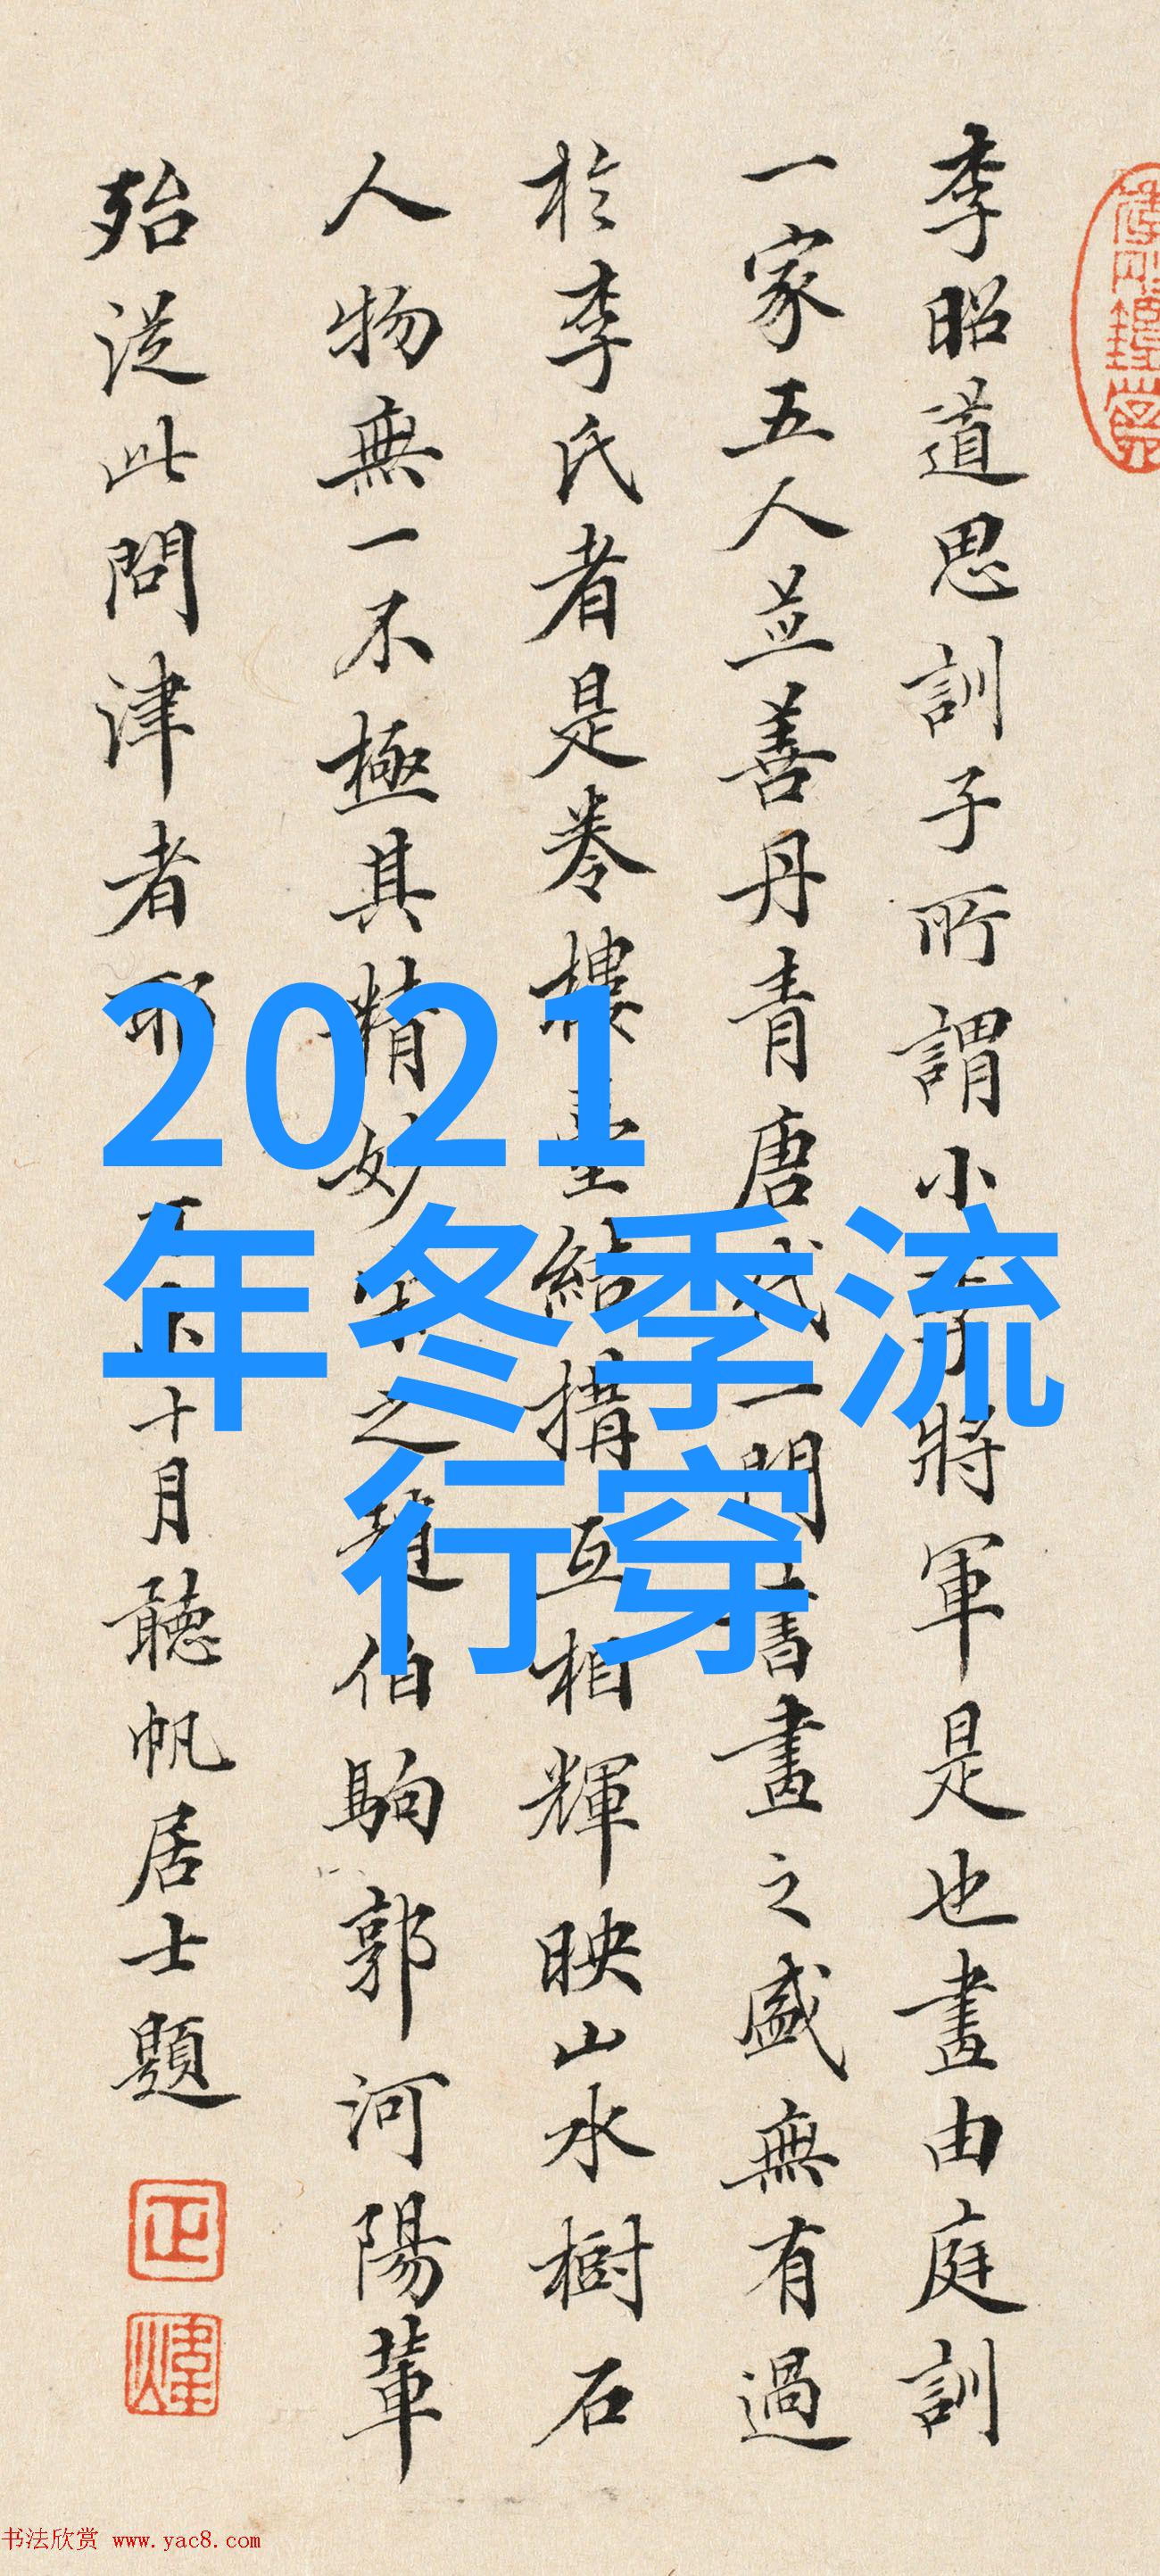 李昭道思訓子所謂小李將軍是也畫由庭訓
一家五人並善丹青唐代一門書畫之盛無有過
於李氏者是卷樓臺結搆互相輝映山水樹石
人物無一不極其精妙宋之趙伯駒郭河陽輩
殆從此問津者耶十月聽帆居士題
正
煒
2021
年冬季流
行穿
书法欣赏 www.yac8.com